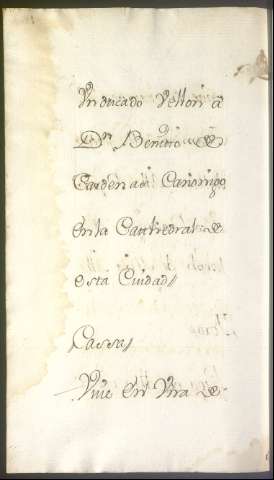 Un ducado Vellon â
Dn. Benito de
Cardenas Canonigo
en la Cathedral de
esta Ciudad//
Cassa//
Vive en Una de